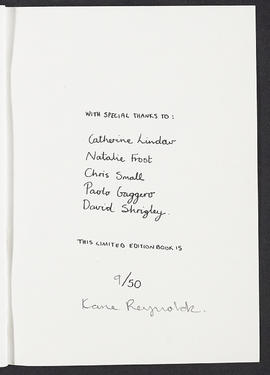 WITH SPECIAL THANKS TO:
Catherine Lindow
Natalie Frost
Chris Small
Paolo Gaggero
David Shrigley.
THIS LIMITED EDITION BOOK IS
9/50
Kane Reynolds.